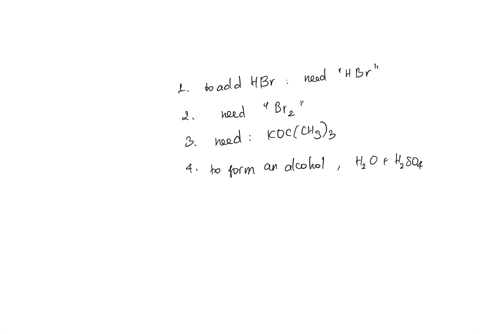 1. to add HBr : need "HBr"
2. need "Br2"
3. need : KOC(CH3)3
4. to form an alcohol , H2O + H2SO4